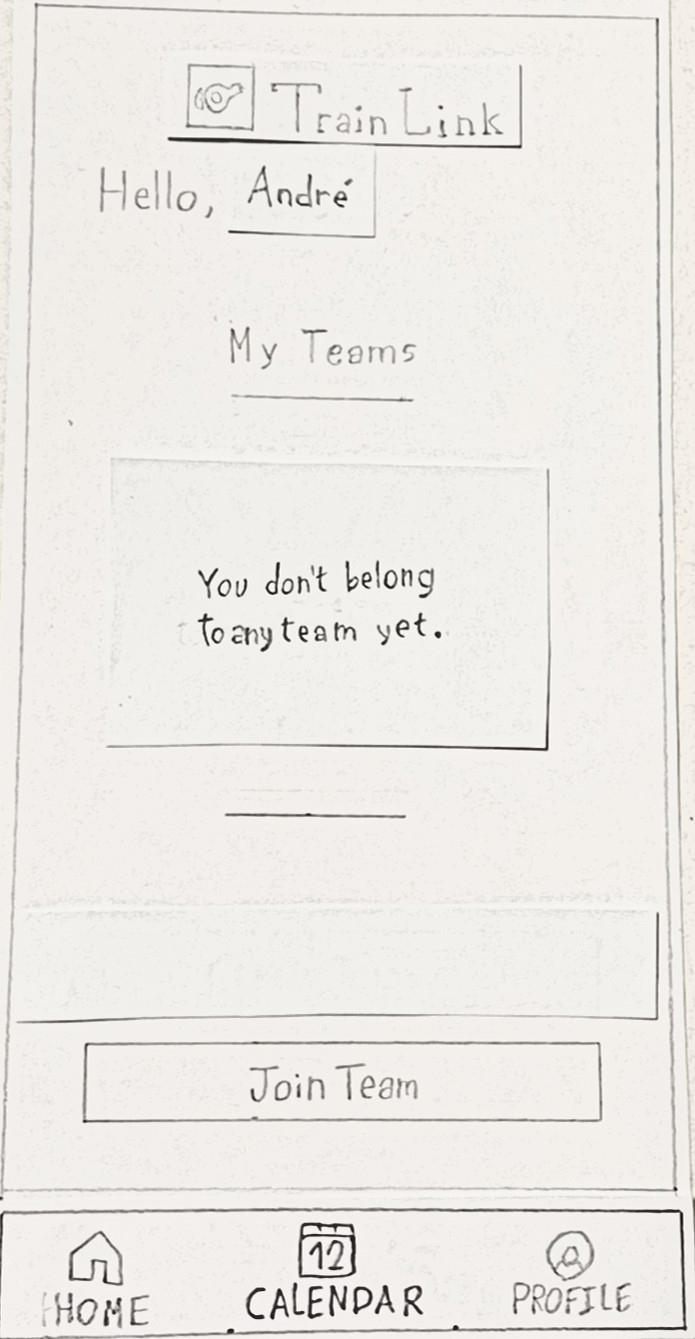 Train Link
Hello, André
My Teams
You don't belong
to any team yet.
Join Team
12
HOME
CALENDAR
PROFILE